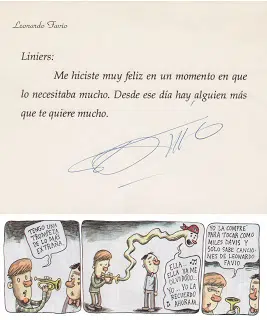 Leonardo Favio
Liniers:
Me hiciste muy feliz en un momento en que
lo necesitaba mucho. Desde ese día hay alguien más
que te quiere mucho.
TENGO UNA
TROMPETA
DE LO MÁS
EXTRAÑA.
ELLA...
ELLA YA ME
OLVIDÓO...
YO... YO LA
RECUERDO
AHORAAA
YO LA COMPRÉ
PARA TOCAR COMO
MILES DAVIS Y
SOLO SABE CANCIO-
NES DE LEONARDO
FAVIO.